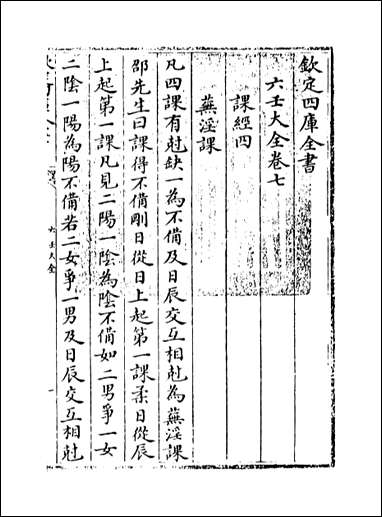 欽定四庫全書
六壬大全卷七
課經四
蕪淫課
凡四課有尅缺一為不備及日辰交互相尅為蕪淫課
邵先生曰課得不備剛日從日上起第一課柔日從辰
上起第一課凡見二陽一陰為陰不備如二男爭一女
二陰一陽為陽不備若二女爭一男及日辰交互相尅
六壬大全
一